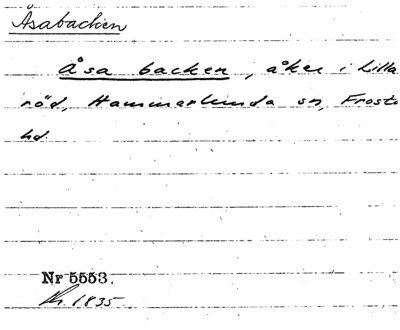 Åsabacken
Åsa backen, åker i Lilla
röd, Hammarlunda sn, Frosta
hd.
Nr 5553.
1835.